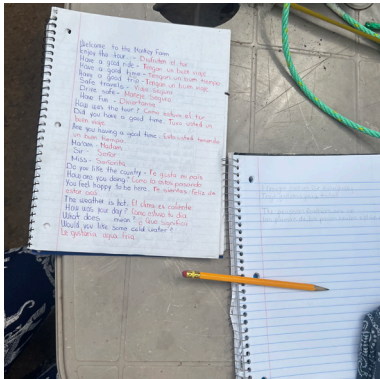 Welcome to the Monkey Farm
Enjoy the tour - Disfruten el tor
Have a good ride - Tengan un buen viaje
Have a good time - Tengan un buen tiempo
Have a good trip - Tengan un buen viaje
Safe travels - Viaje Seguro
Drive safe - Maneje Seguro
Have fun - Diviertanse
How was the tour? Como estuvo el tor
Did you have a good time. Tuvo usted un
buen viaje
Are you having a good time - Esta usted teniendo
un buen tiempo
Ma'am - Madam
Sir - Señor
Miss - Señorita
Do you like the country - Te gusta mi país
How are you doing? Como la estas pasando
You feel happy to be here. Te sientes feliz de
estar acá
The weather is hot. El clima es caliente
How was your day? Como estuvo tu día
What does mean? ¿Qué significa
Would you like some cold water?
Le gustaría agua fría